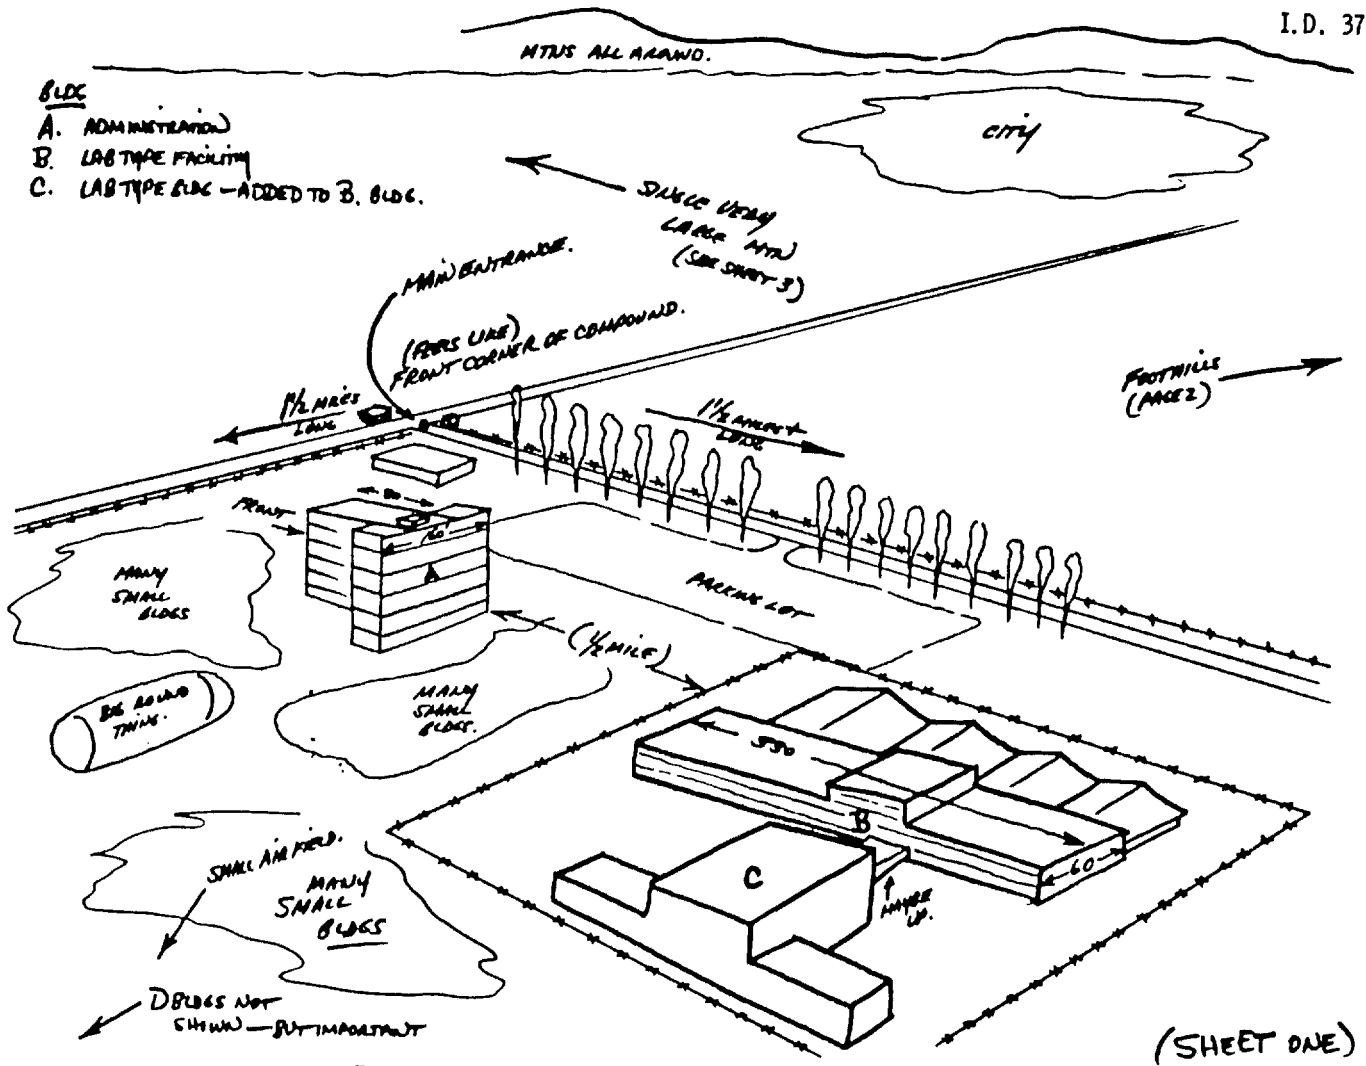 I.D. 37
MTNS ALL AROUND.
BLDG
A. ADMINISTRATION
B. LAB TYPE FACILITY
C. LAB TYPE BLDG — ADDED TO B. BLDG.
CITY
SINGLE VERY
LARGE MTN
(SEE SHEET 3)
MAIN ENTRANCE.
(FEELS LIKE)
FRONT CORNER OF COMPOUND.
FOOTHILLS
(PAGE 2)
1 1/2 MILES
LONG
1 1/2 MILES +
LONG
FRONT
80
60
A
MANY
SMALL
BLDGS
PARKING LOT
(1/2 MILE)
BIG ROUND
THING.
MANY
SMALL
BLDGS.
330
B
60
C
MAYBE
UP.
SMALL AIR FIELD.
MANY
SMALL
BLDGS
D BLDGS NOT
SHOWN — BUT IMPORTANT
(SHEET ONE)